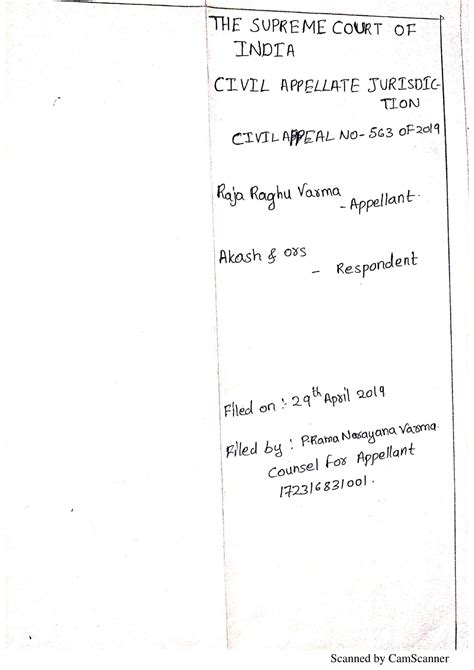 THE SUPREME COURT OF
INDIA
CIVIL APPELLATE JURISDIC-
TION
CIVIL APPEAL NO- 563 OF 2019
Raja Raghu Varma
- Appellant.
Akash & ors
- Respondent
Filed on :- 29th April 2019
Filed by : P.Rama Narayana Varma.
Counsel for Appellant
172316831001.
Scanned by CamScanner